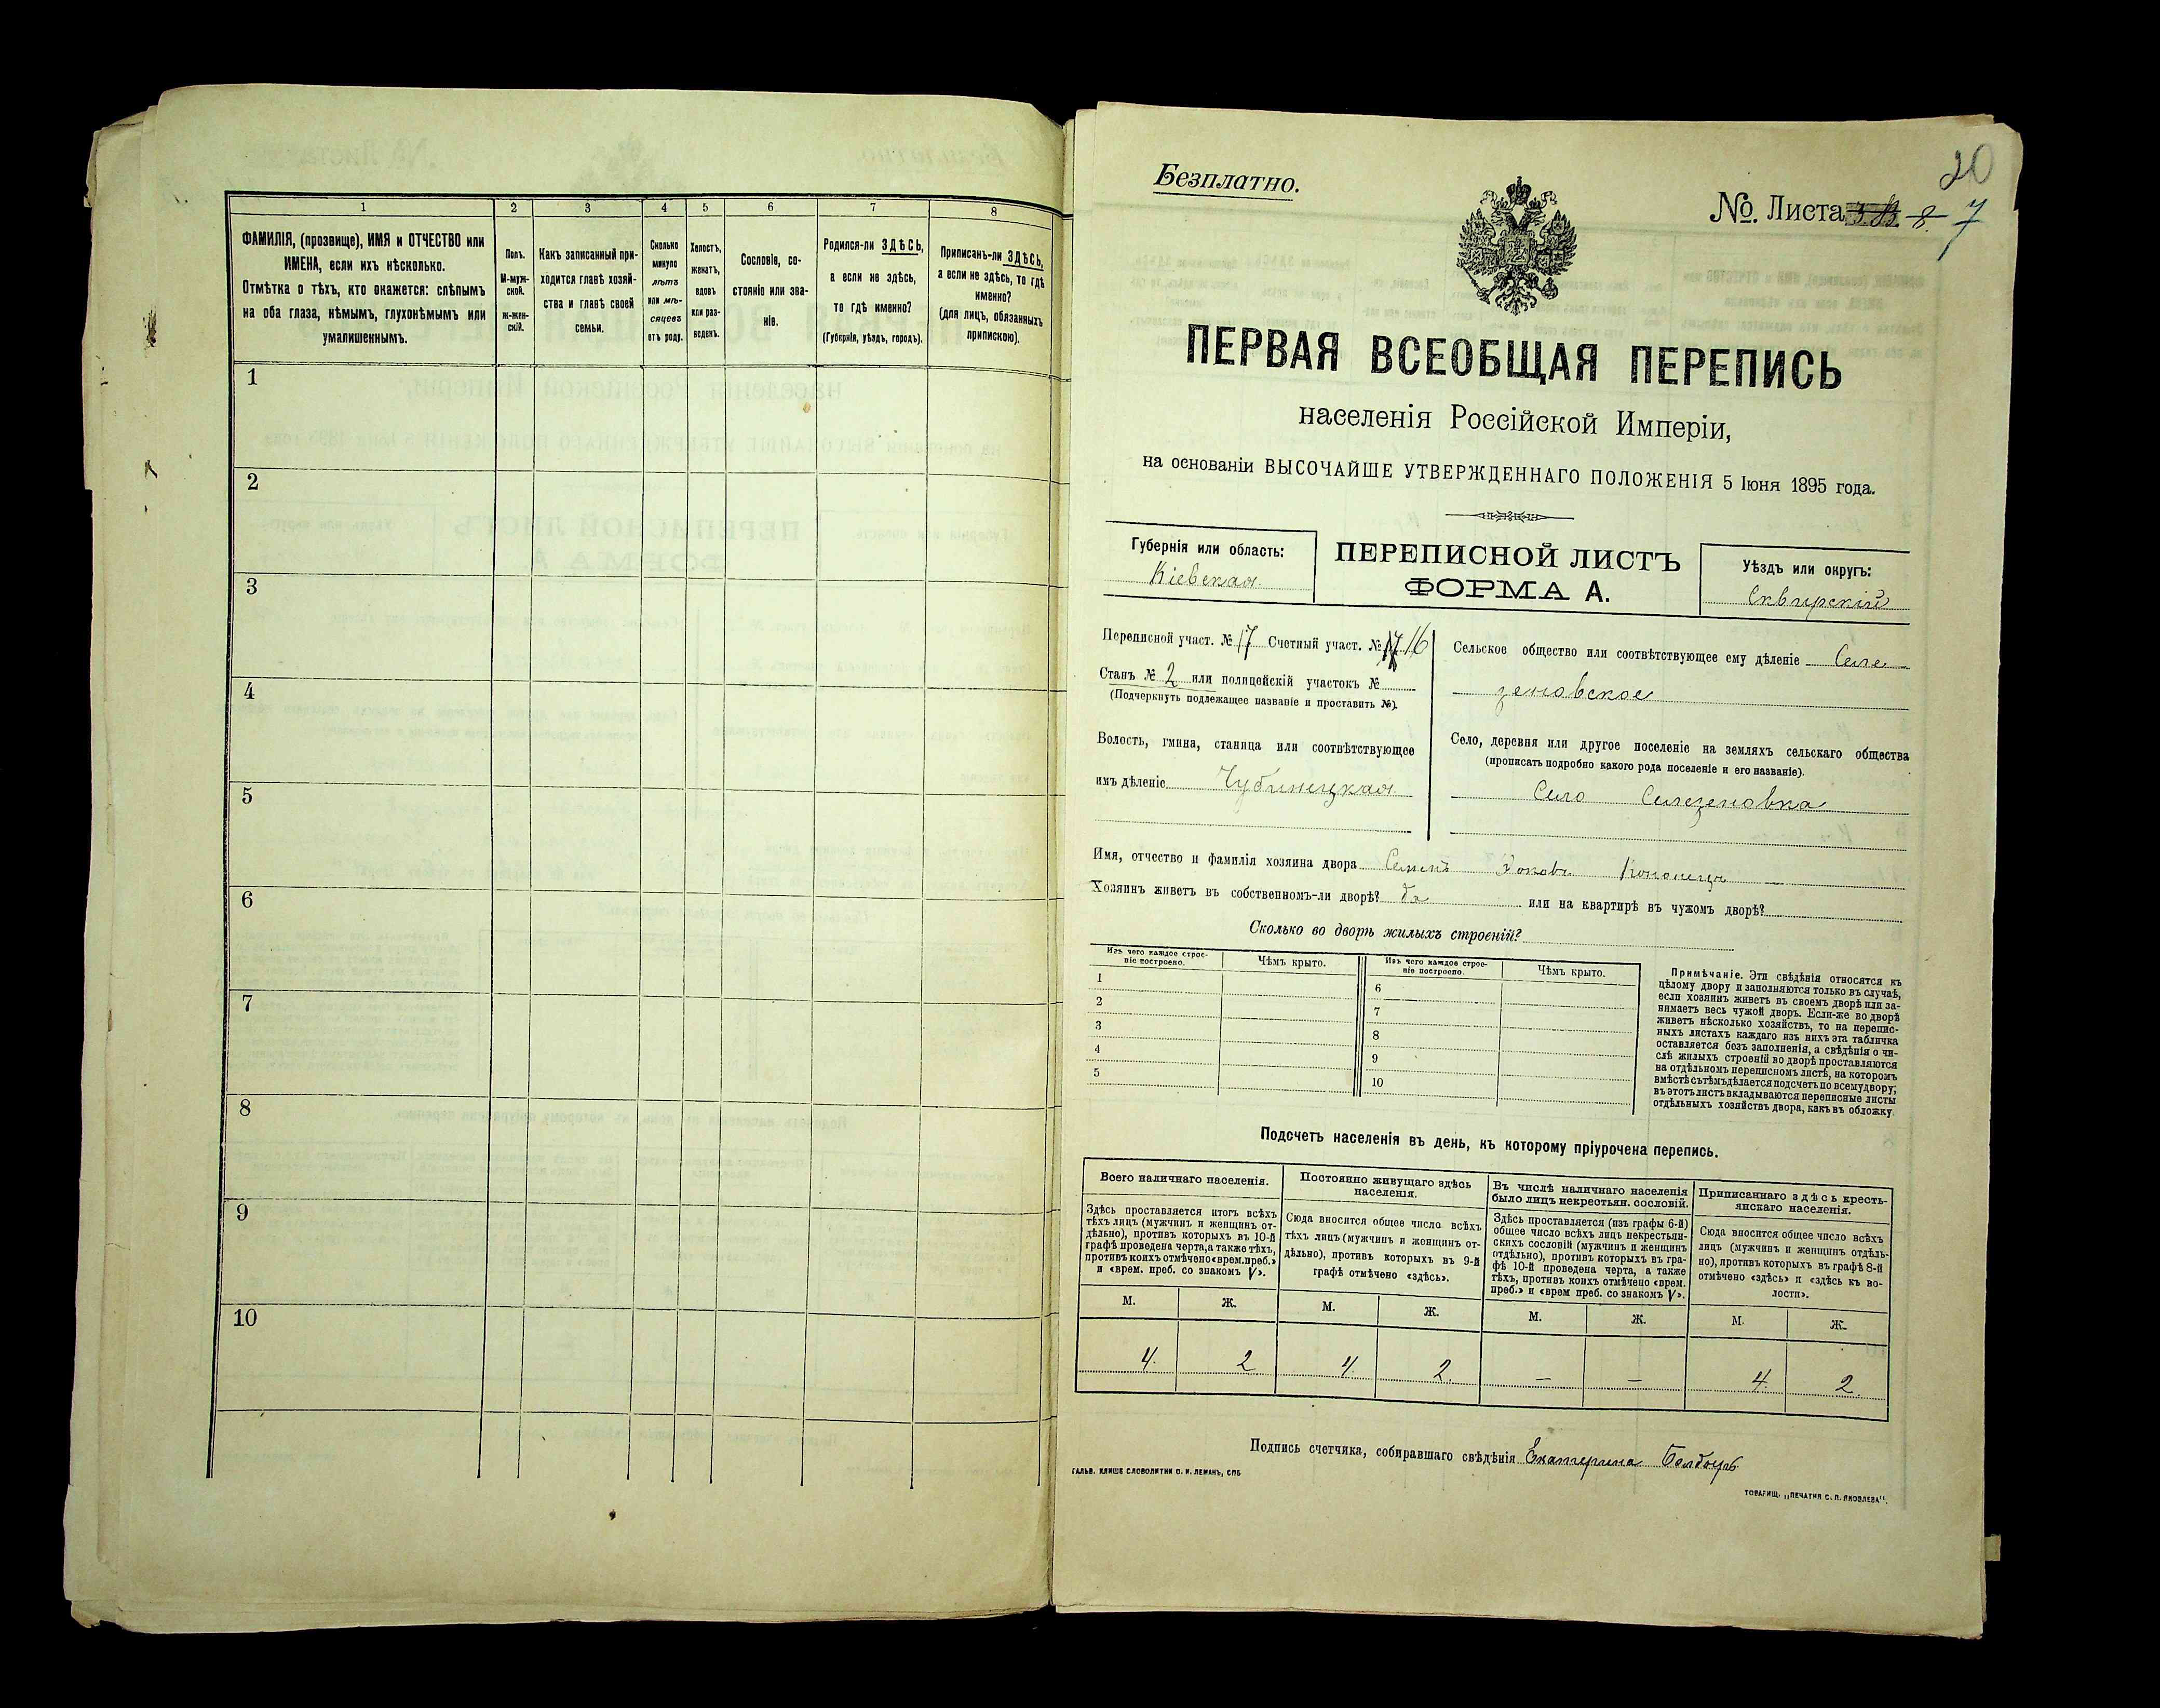 1 2 3 4 5 6 7 8
ФАМИЛІЯ, (прозвище), ИМЯ и ОТЧЕСТВО или
ИМЕНА, если ихъ нѣсколько.
Отмѣтка о тѣхъ, кто окажется: слѣпымъ
на оба глаза, нѣмымъ, глухонѣмымъ или
умалишеннымъ.
Полъ.
М-муж-
ской.
ж-жен-
скій.
Какъ записанный при-
ходится главѣ хозяй-
ства и главѣ своей
семьи.
Сколько
минуло
лѣтъ
или мѣ-
сяцевъ
отъ роду.
Холостъ,
женатъ,
вдовъ
или раз-
веденъ.
Сословіе, со-
стояніе или зва-
ніе.
Родился-ли ЗДѢСЬ,
а если не здѣсь,
то гдѣ именно?
(Губернія, уѣздъ, городъ).
Приписанъ-ли ЗДѢСЬ,
а если не здѣсь, то гдѣ
именно?
(для лицъ, обязанныхъ
припискою).
1
2
3
4
5
6
7
8
9
10
20
Безплатно.
№ Листа 8. 7
ПЕРВАЯ ВСЕОБЩАЯ ПЕРЕПИСЬ
населенія Россійской Имперіи,
на основаніи ВЫСОЧАЙШЕ УТВЕРЖДЕННАГО ПОЛОЖЕНІЯ 5 Іюня 1895 года.
Губернія или область:
Кіевская
ПЕРЕПИСНОЙ ЛИСТЪ
ФОРМА А.
Уѣздъ или округъ:
Сквирскій
Переписной участ. № 17 Счетный участ. № 16
Станъ № 2 или полицейскій участокъ №
(Подчеркнуть подлежащее названіе и проставить №).
Волость, гмина, станица или соотвѣтствующее
имъ дѣленіе Чубинецкая
Сельское общество или соотвѣтствующее ему дѣленіе Селе
зеновское
Село, деревня или другое поселеніе на земляхъ сельскаго общества
(прописать подробно какого рода поселеніе и его названіе).
Село Селезеновка
Имя, отчество и фамилія хозяина двора
Хозяинъ живетъ въ собственномъ-ли дворѣ? да или на квартирѣ въ чужомъ дворѣ?
Сколько во дворѣ жилыхъ строеній?
Изъ чего каждое строе-
ніе построено.
Чѣмъ крыто.
Изъ чего каждое строе-
ніе построено.
Чѣмъ крыто.
1
2
3
4
5
6
7
8
9
10
Примѣчаніе. Эти свѣдѣнія относятся къ
цѣлому двору и заполняются только въ случаѣ,
если хозяинъ живетъ въ своемъ дворѣ или за-
нимаетъ весь чужой дворъ. Если-же во дворѣ
живетъ нѣсколько хозяйствъ, то на перепис-
ныхъ листахъ каждаго изъ нихъ эта табличка
оставляется безъ заполненія, а свѣдѣнія о чи-
слѣ жилыхъ строеній во дворѣ проставляются
на отдѣльномъ переписномъ листѣ, на которомъ
вмѣстѣ съ тѣмъ дѣлается подсчетъ по всему двору;
въ этотъ листъ вкладываются переписные листы
отдѣльныхъ хозяйствъ двора, какъ въ обложку.
Подсчетъ населенія въ день, къ которому пріурочена перепись.
Всего наличнаго населенія.
Здѣсь проставляется итогъ всѣхъ
тѣхъ лицъ (мужчинъ и женщинъ от-
дѣльно), противъ которыхъ въ 10-й
графѣ проведена черта, а также тѣхъ,
противъ коихъ отмѣчено «врем. преб.»
и «врем. преб. со знакомъ V».
Постоянно живущаго здѣсь
населенія.
Сюда вносится общее число всѣхъ
тѣхъ лицъ (мужчинъ и женщинъ от-
дѣльно), противъ которыхъ въ 9-й
графѣ отмѣчено «здѣсь».
Въ числѣ наличнаго населенія
было лицъ некрестьян. сословій.
Здѣсь проставляется (изъ графы 6-й)
общее число всѣхъ лицъ некрестьян-
скихъ сословій (мужчинъ и женщинъ
отдѣльно), противъ которыхъ въ гра-
фѣ 10-й проведена черта, а также
тѣхъ, противъ коихъ отмѣчено «врем.
преб.» и «врем преб. со знакомъ V».
Приписаннаго здѣсь кресть-
янскаго населенія.
Сюда вносится общее число всѣхъ
лицъ (мужчинъ и женщинъ отдѣль-
но), противъ которыхъ въ графѣ 8-й
отмѣчено «здѣсь» и «здѣсь къ во-
лости».
М. Ж. М. Ж. М. Ж. М. Ж.
4. 2 4. 2. — — 4. 2.
Подпись счетчика, собиравшаго свѣдѣнія Екатерина
ГАЛЬВ. КЛИШЕ СЛОВОЛИТНИ О. И. ЛЕМАНЪ, СПБ
ТОВАРИЩ. „ПЕЧАТНЯ С. П. ЯКОВЛЕВА".